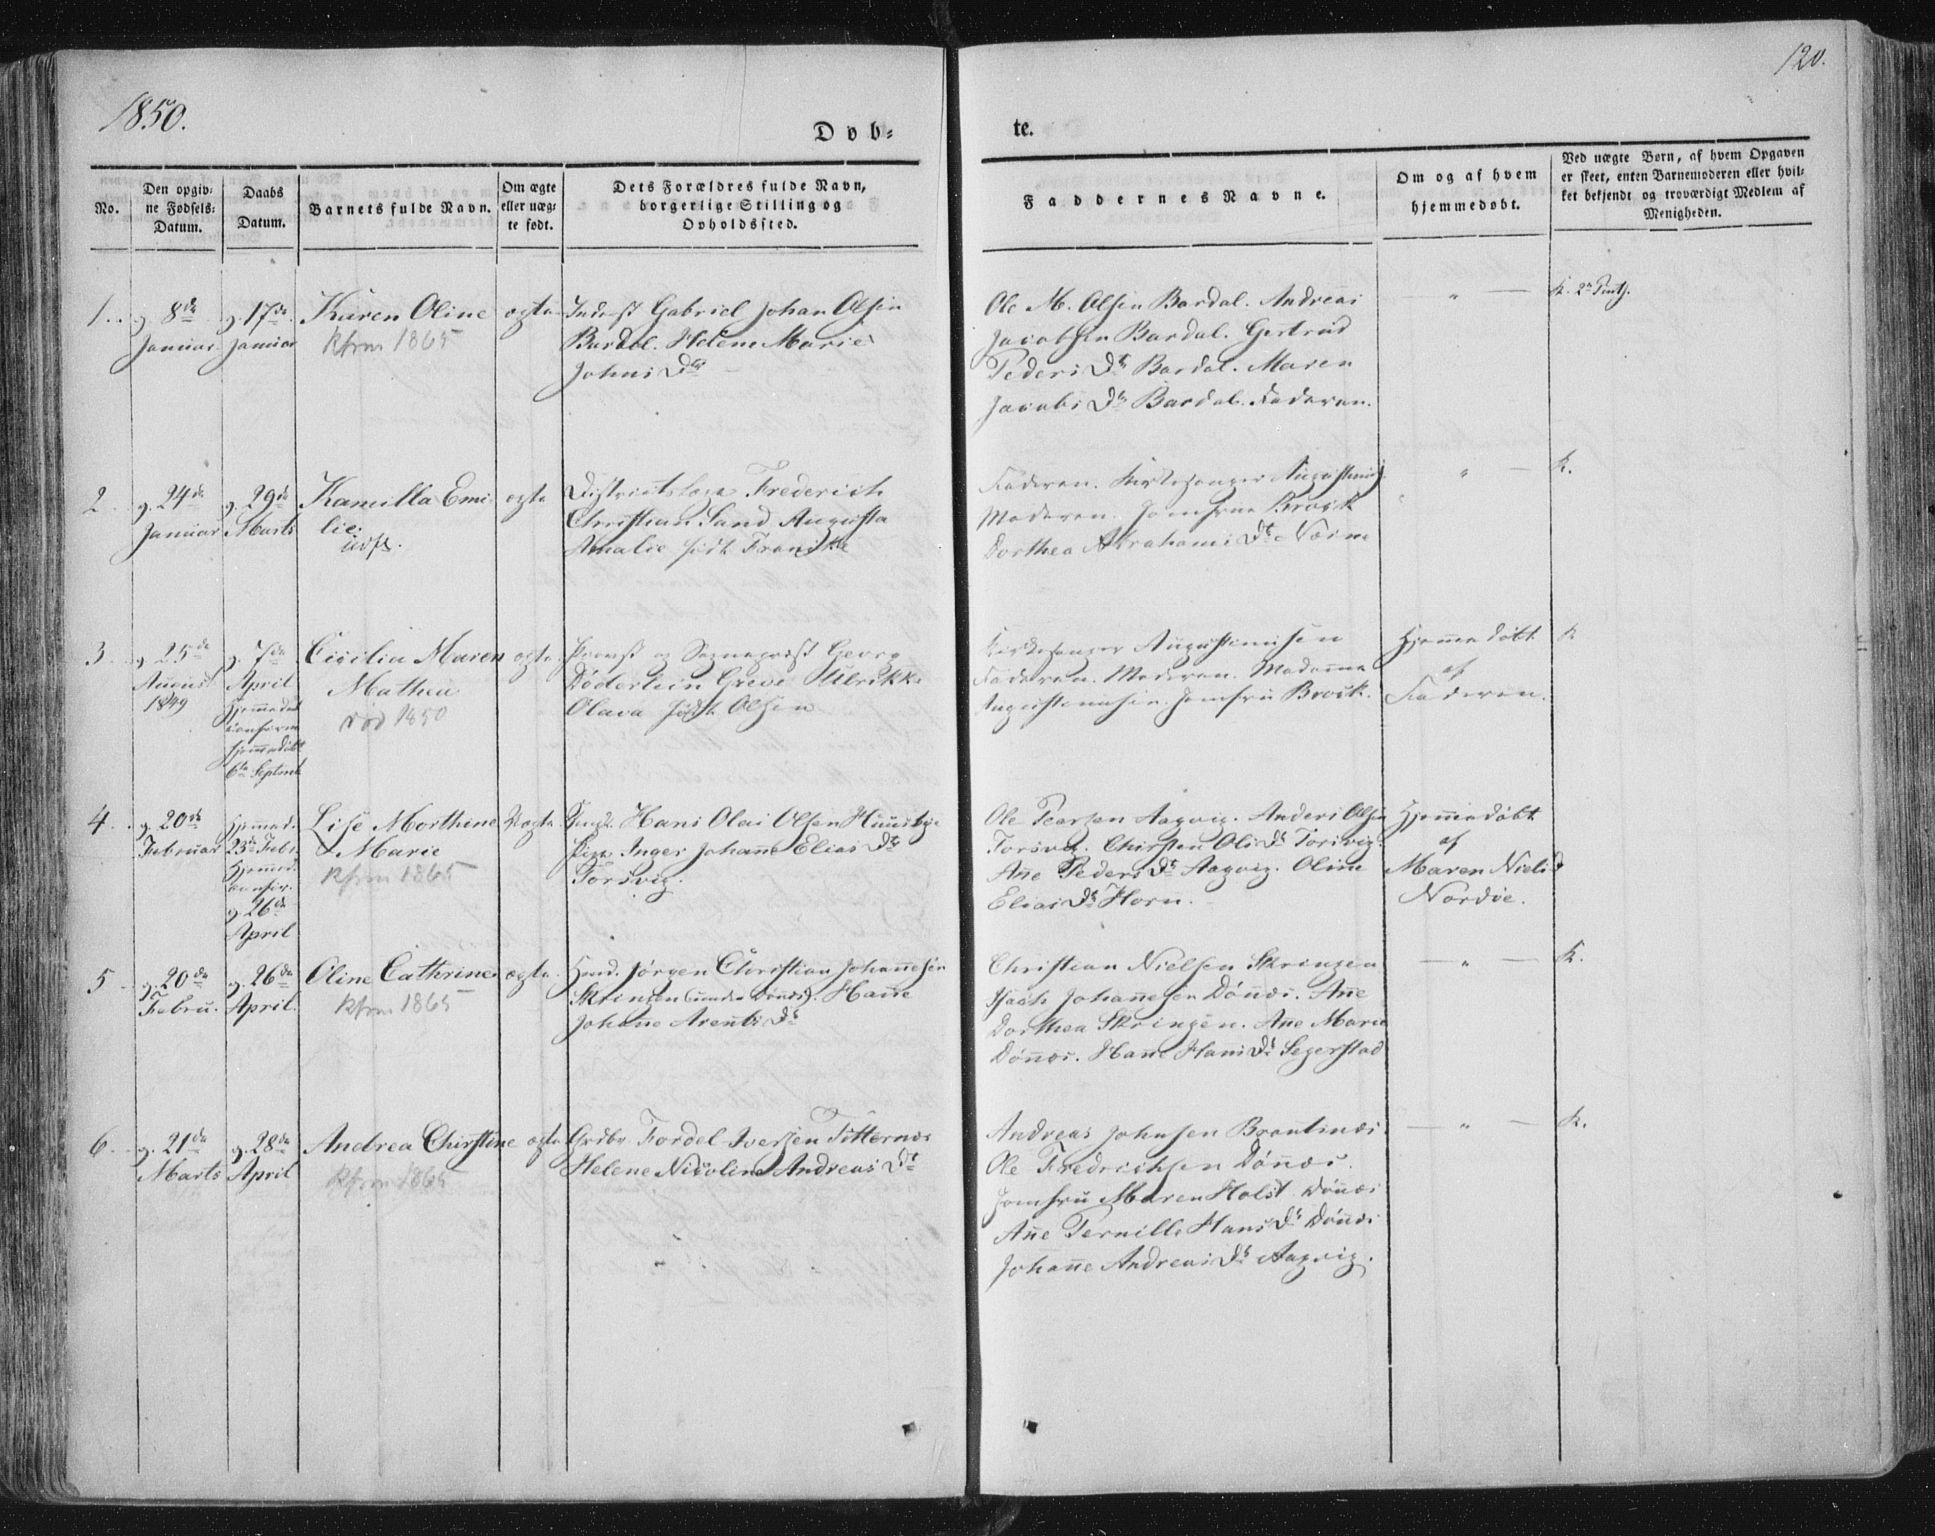 1850.
120.
Døb-
te.
No.
Den opgiv-
ne Fødsels-
Datum.
Daabs
Datum.
Barnets fulde Navn.
Om ægte
eller uæg-
te født.
Dets Forældres fulde Navn,
borgerlige Stilling og
Opholdssted.
Faddernes Navne.
Om og af hvem
hjemmedøbt.
Ved uægte Børn, af hvem Opgaven
er skeet, enten Barnemoderen eller hvil-
ket bekjendt og troværdigt Medlem af
Menigheden.
1.
d. 8de
Januar
d. 17de
Januar
Karen Oline
Kfrm 1865
ægte
Inderst Gabriel Johan Olsen
Bardal. Helene Marie
Johns Dtr
Ole M. Olsen Bardal. Andreas
Jacobsen Bardal. Gertrud
Peders Dr Bardal. Maren
Jacobs Dr Bardal. Faderen.
— " —
K.
2
d. 24de
Januar
d. 29de
Marts
Kamilla Emi
lie
ægte
Districtslæge Frederich
Christian Sand Augusta
Amalie født
Faderen. Kirkesanger
Moderen. Jomfrue Brock
Dorthea Abrahams Dr
" —
K.
3
d. 25de
August
1849
d. 7de
April
Hjemmedaab
hjemmedøbt
6te Septemb
Cicilia Maren
Mathea
død 1850
ægte
Provst og Sognepræst Georg
Døderlein Greve Ulrikke
Olava født Olsen
Kirkesanger Augustinusen
Faderen. Moderen. Madamme
Augustinusen. Jomfru Brock.
Hjemmedøbt
af
Faderen.
K
4
d. 20de
Februar
Hjemmed.
23de Febr.
Hjemmed.
d. 26de
April
Lise Morthine
Marie
Kfrm 1865
Uægte
Hans Olai Olsen Huusbye
Pige Inger Johanne Elias Dr
Forsvig.
Ole Pearsen Aagvig. Anders Olsen
Forsvig. Chirsten Ols Dr Forsvig.
Ane Peders Dr Aagvig. Oline
Elias Dr Horn.
Hjemmedøbt
af
Maren Niels D
Nordøe.
5
d. 20de
Febru.
d. 26de
April.
Oline Cathrine
Kfrm 1865
ægte
Huusm. Jørgen Christian Johannesen
Skeinsen (under Dønæs). Hanne
Johanne Arents Dr
Christian Nielsen Skeinsen
Isach Johannesen Dønæs. Ane
Dorthea Skeinsen. Ane Marie
Dønæs. Hanne Hans Dr Segerstad
— " —
K.
6
d. 21de
Marts
d. 28de
April
Andrea Chirstine
Kfrm 1865
ægte
Grdbr. Fordel Iversen Titternæs
Helene Nicoline Andreas Dr
Andreas Johnsen Brentnæs.
Ole Fredrichsen Dønæs.
Jomfru Maren Holst Dønæs
Ane Pernille Hans Dr Dønæs
Johanne Andreas Dr Aagvig.
— " —
K.